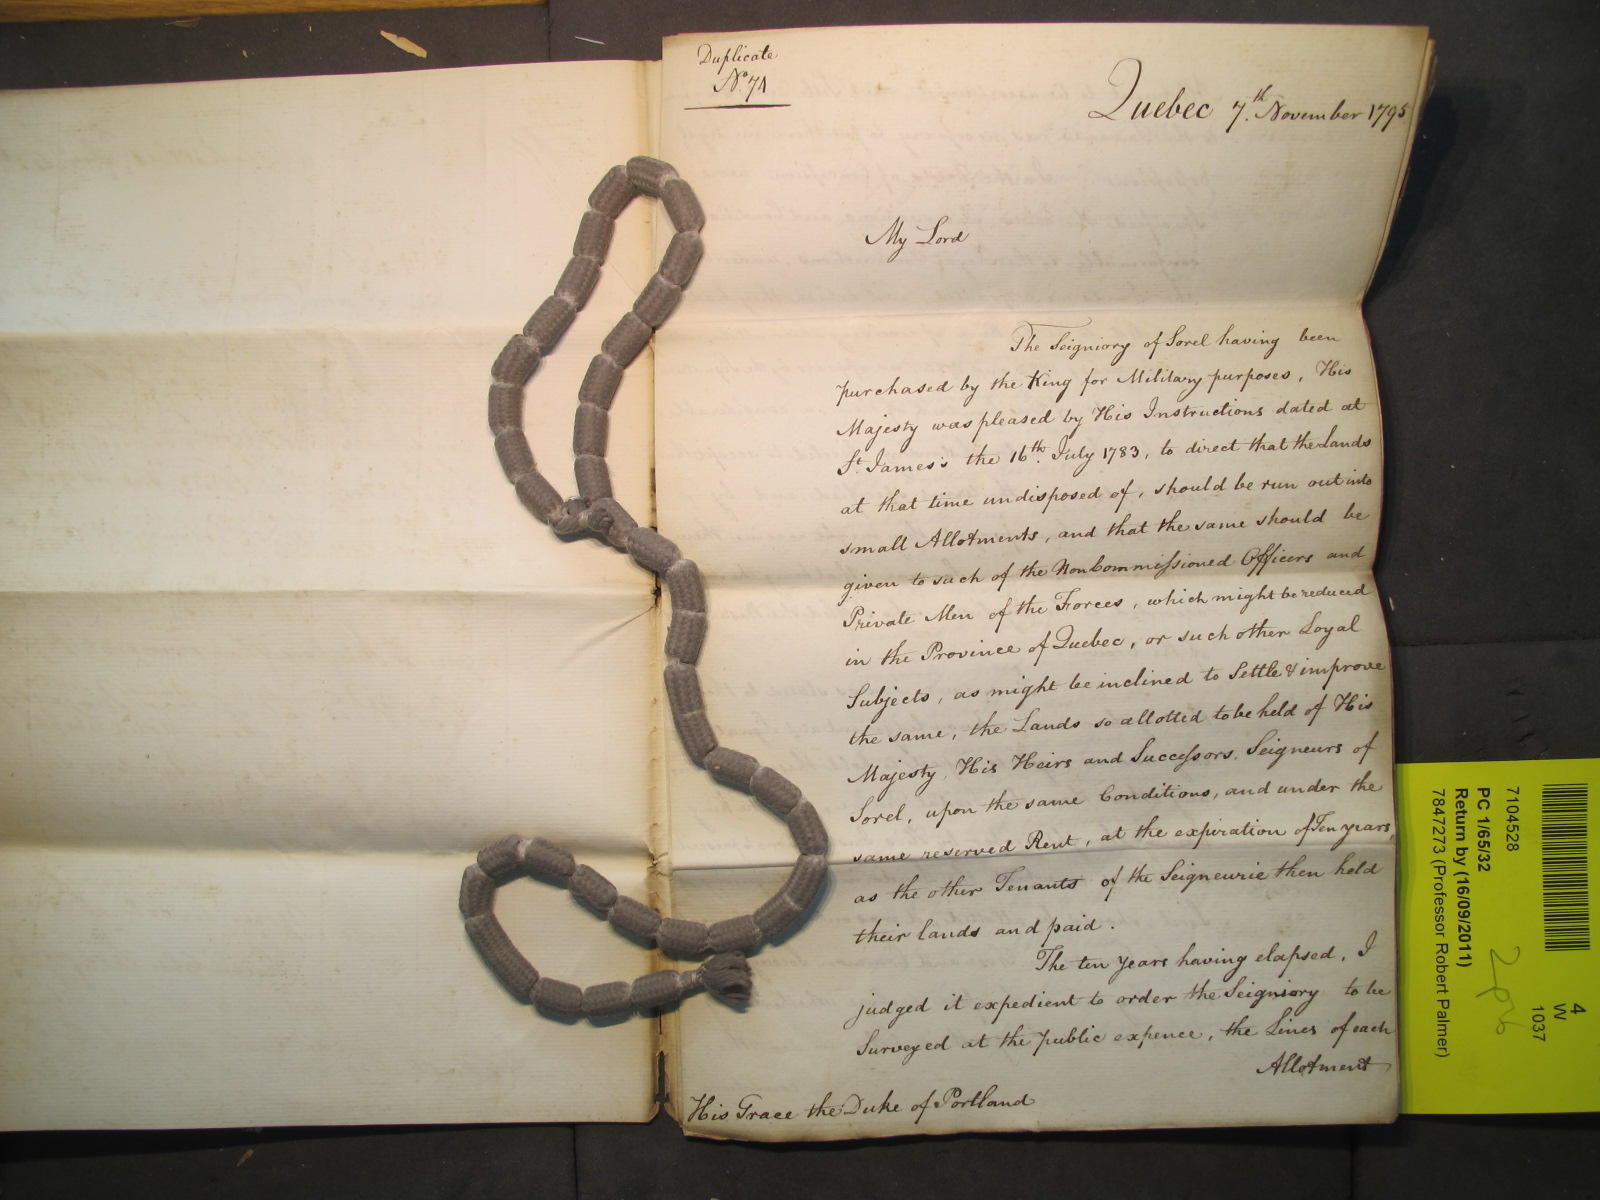 Duplicate
No. 74
Quebec 7th. November 1795
My Lord
The Seigniory of Sorel having been
purchased by the King for Military purposes, His
Majesty was pleased by His Instructions dated at
St. James's the 16th. July 1783, to direct that the Lands
at that time undisposed of, should be run out into
small Allotments, and that the same should be
given to such of the NonCommissioned Officers and
Private Men of the Forces, which might be reduced
in the Province of Quebec, or such other Loyal
Subjects, as might be inclined to Settle & improve
the same, the Lands so allotted to be held of His
Majesty, His Heirs and Successors, Seigneurs of
Sorel, upon the same Conditions, and under the
same reserved Rent, at the expiration of Ten years,
as the other Tenants of the Seigneurie then held
their lands and paid.
The ten years having elapsed, I
judged it expedient to order the Seigniory to be
Surveyed at the public expence, the Lines of each
Allotment
His Grace the Duke of Portland
7104528
PC 1/65/32
Return by (16/09/2011)
7847273 (Professor Robert Palmer)
4
W
1037